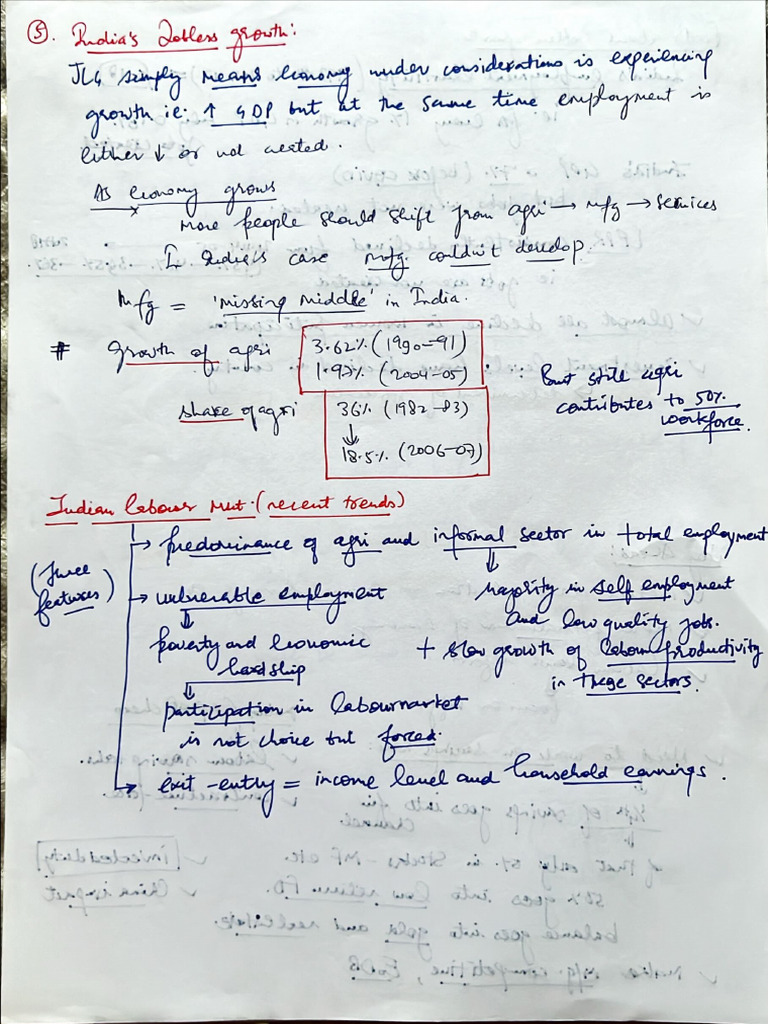 ⑤. India's Jobless growth:
JLG simply means economy under considerations is experiencing
growth ie: ↑ GDP but at the same time employment is
either ↓ or not created.
As economy grows
more people should shift from agri → mfg → services
In India's case mfg. couldn't develop.
Mfg = 'missing middle' in India.
# Growth of agri 3.62% (1990-91)
1.97% (2004-05) ∵ But still agri
contributes to 50%
workforce.
share of agri 36% (1982-83)
↓
18.5% (2006-07)
Indian labour mkt. (recent trends)
(Three
features)
→ predominance of agri and informal sector in total employment
↓
majority in self employment
and low quality jobs.
+ slow growth of labour productivity
in these sectors.
→ vulnerable employment
↓
poverty and economic
hardship
↓
participation in labourmarket
is not choice but forced.
→ exit-entry = income level and household earnings.